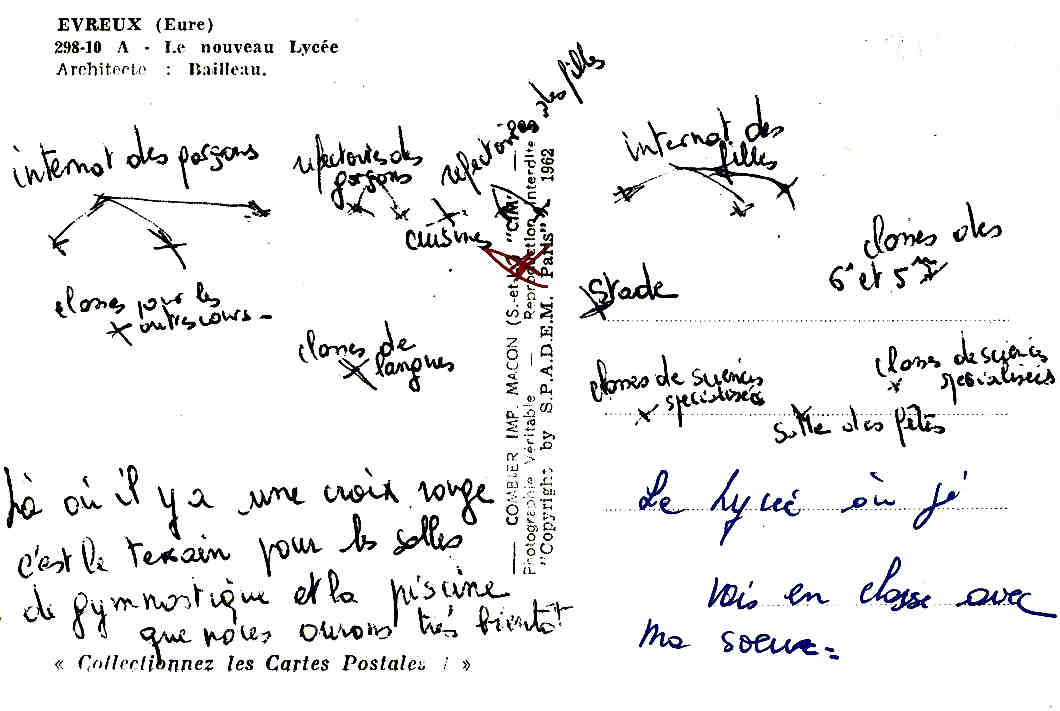 EVREUX (Eure)
298-10 A - Le nouveau Lycée
Architecte : Bailleau.
internat des garçons
refectoires des
garçons
refectoires des filles
internat des
filles
cuisines
classes des
6e et 5e
classes pour les
autres cours -
Stade
classes de
langues
classes de sciences
specialisées
classes de sciences
specialisées
salle des fêtes
— COMBIER IMP. MACON (S.-et-L.) "CIM" —
Photographie Véritable — Reproduction Interdite
"Copyright by S.P.A.D.E.M. Paris" 1962
Là où il y a une croix rouge
c'est le terrain pour les salles
de gymnastique et la piscine
que nous aurons très bientôt
« Collectionnez les Cartes Postales ! »
Le Lycée où je
vais en classe avec
ma soeur =